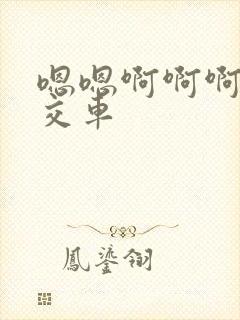 嗯嗯啊啊啊
交车
鳳鎏翎